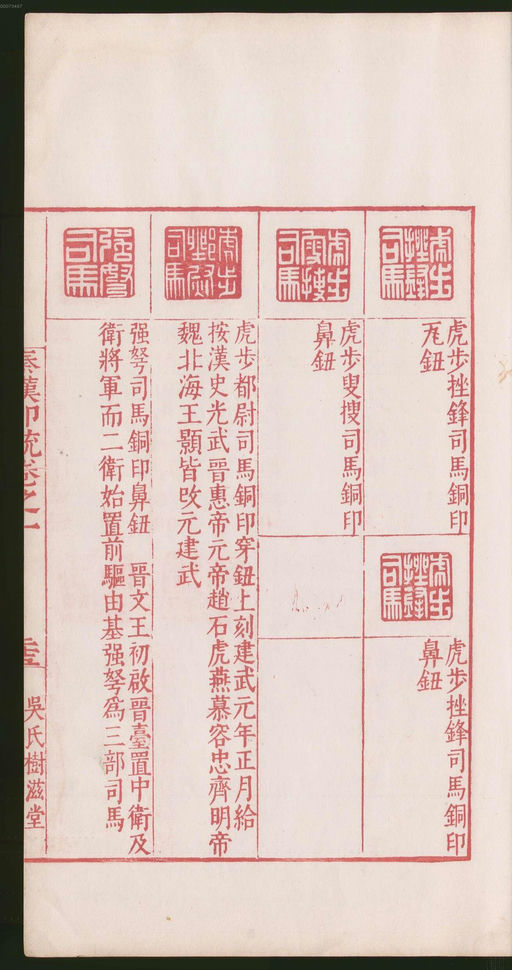 虎步挫鋒司馬
虎步挫鋒司馬銅印
瓦鈕
虎步挫鋒司馬
虎步挫鋒司馬銅印
鼻鈕
虎步叟搜司馬
虎步叟搜司馬銅印
鼻鈕
虎步都尉司馬
虎步都尉司馬銅印穿鈕上刻建武元年正月給
按漢史光武晉惠帝元帝趙石虎燕慕容忠齊明帝
魏北海王顥皆改元建武
强弩司馬
强弩司馬銅印鼻鈕　晉文王初啟晉臺置中衛及
衛將軍而二衛始置前驅由基强弩爲三部司馬
秦漢印統卷之一
吳氏樹滋堂
00073467